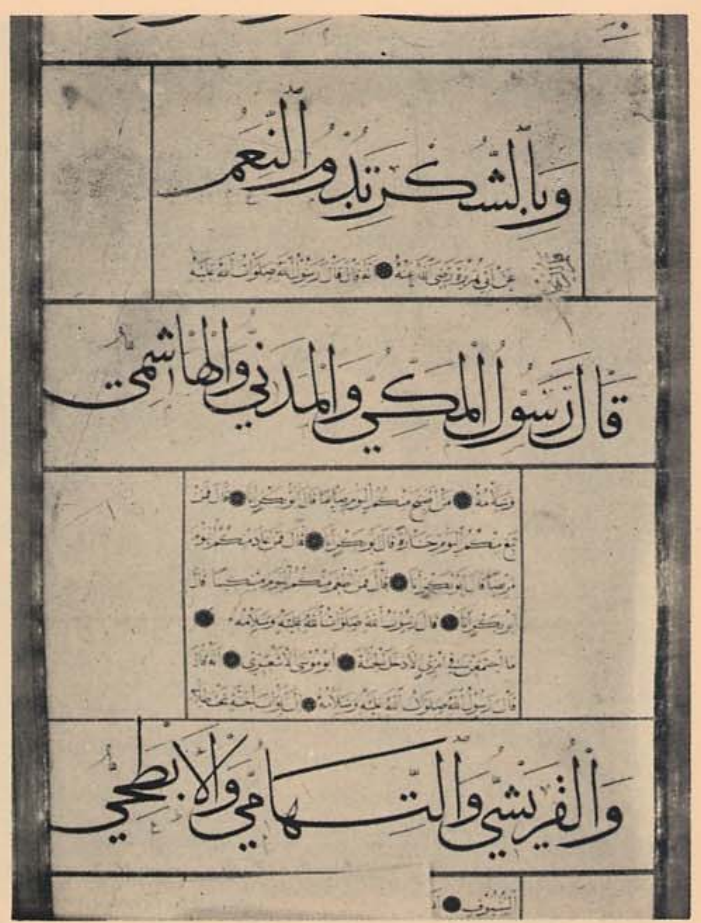 وَبِالشُّكْرِ تَدُومُ النِّعَمُ
عَنْ أَبِي هُرَيْرَةَ رَضِيَ اللهُ عَنْهُ ● أَنَّهُ قَالَ قَالَ رَسُولُ اللهِ صَلَوَاتُ اللهِ عَلَيْهِ
قَالَ رَسُولُ الْمَكِّيِّ وَالْمَدَنِيِّ وَالْهَاشِمِيِّ
وَسَلَامُهُ ● مَنْ أَصْبَحَ مِنْكُمُ الْيَوْمَ صَائِمًا قَالَ أَبُو بَكْرٍ أَنَا ● قَالَ فَمَنْ
تَبِعَ مِنْكُمُ الْيَوْمَ جَنَازَةً قَالَ أَبُو بَكْرٍ أَنَا ● قَالَ فَمَنْ عَادَ مِنْكُمُ الْيَوْمَ
مَرِيضًا قَالَ أَبُو بَكْرٍ أَنَا ● قَالَ فَمَنْ أَطْعَمَ مِنْكُمُ الْيَوْمَ مِسْكِينًا قَالَ
أَبُو بَكْرٍ أَنَا ● قَالَ رَسُولُ اللهِ صَلَوَاتُ اللهِ عَلَيْهِ وَسَلَامُهُ ●
مَا اجْتَمَعْنَ فِي امْرِئٍ إِلَّا دَخَلَ الْجَنَّةَ ● أَبُو مُوسَى الْأَشْعَرِيِّ ● أَنَّهُ قَالَ
قَالَ رَسُولُ اللهِ صَلَوَاتُ اللهِ عَلَيْهِ وَسَلَامُهُ ● أَبْوَابُ الْجَنَّةِ تَحْتَ ظِلَالِ
وَالْقُرَيْشِيِّ وَالتِّهَامِيِّ وَالْأَبْطَحِيِّ
السُّيُوفِ ●